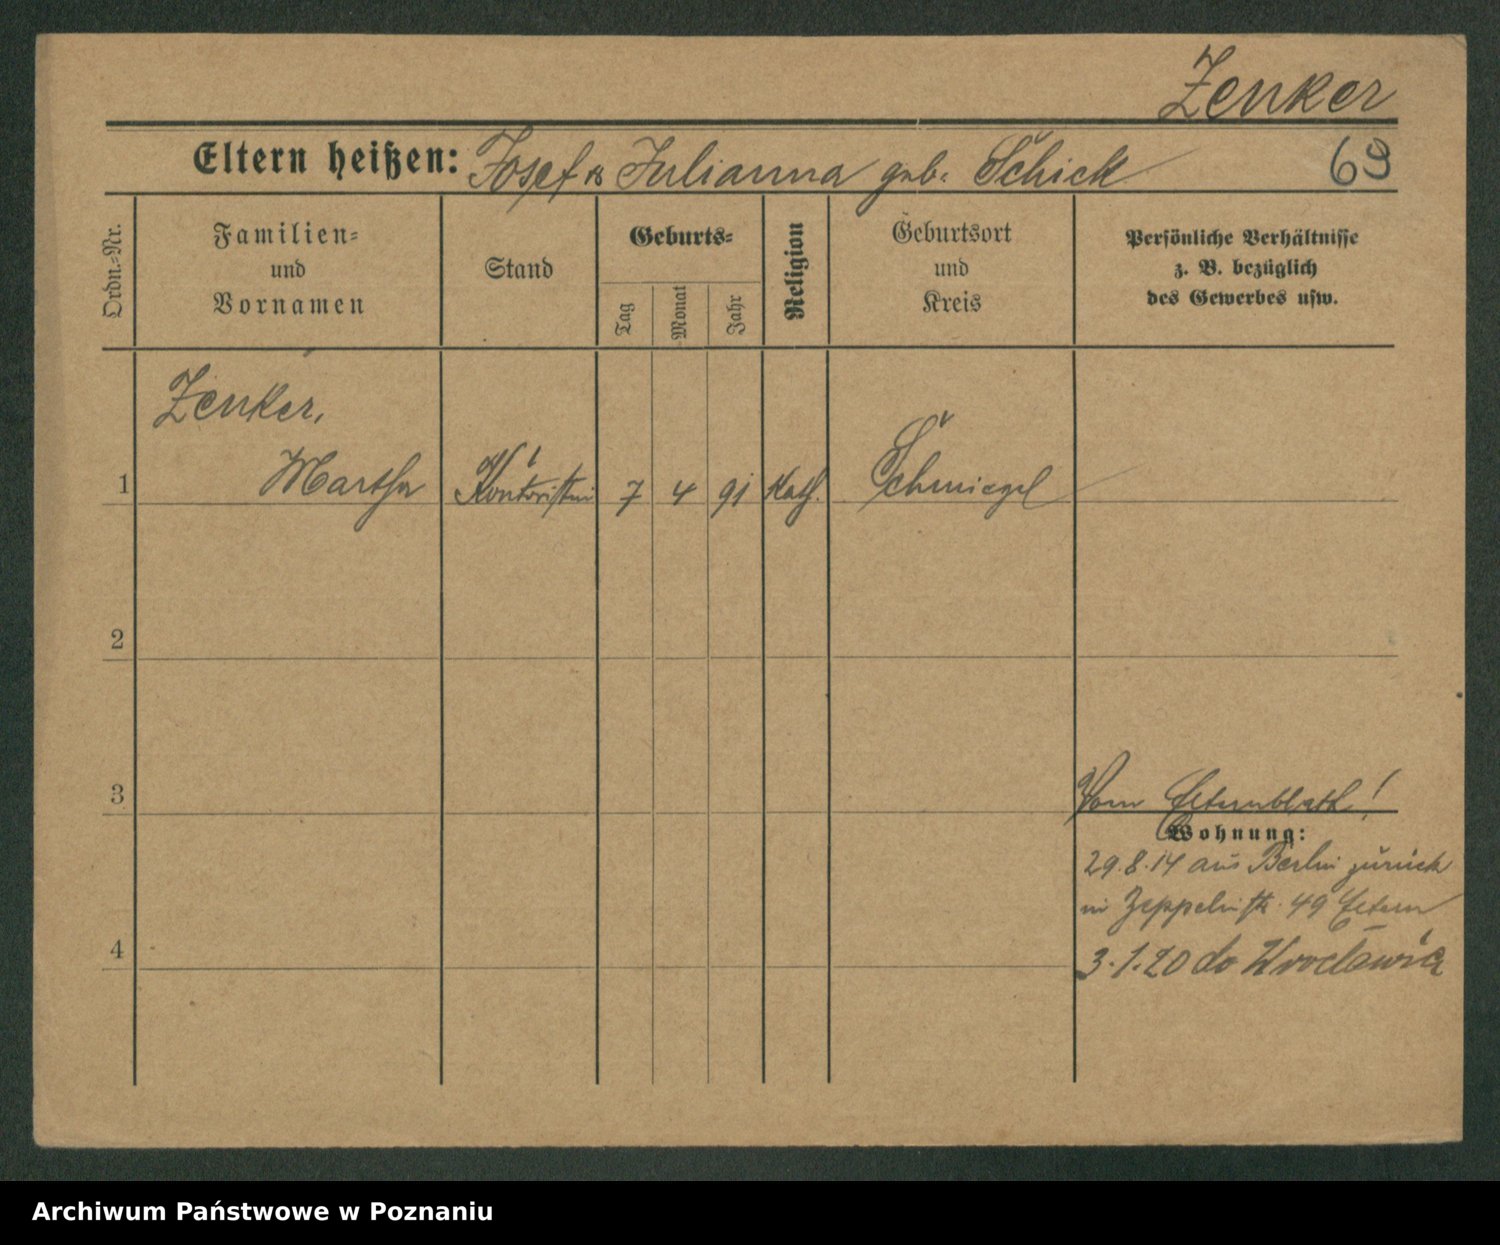 Zenker
Eltern heißen: Josef & Julianna geb. Schick
69
Ordn.-Nr.
Familien-
und
Vornamen
Stand
Geburts-
Tag
Monat
Jahr
Religion
Geburtsort
und
Kreis
Persönliche Verhältnisse
z. B. bezüglich
des Gewerbes usw.
Zenker,
1 Martha Kontoristin 7 4 91 Kath. Schmiegel
2
3
Vom Elternblatt!
Wohnung:
29.8.14 aus Berlin zurück
in Zeppelinstr. 49 Eltern
4
3.1.20 do Wrocławia
Archiwum Państwowe w Poznaniu